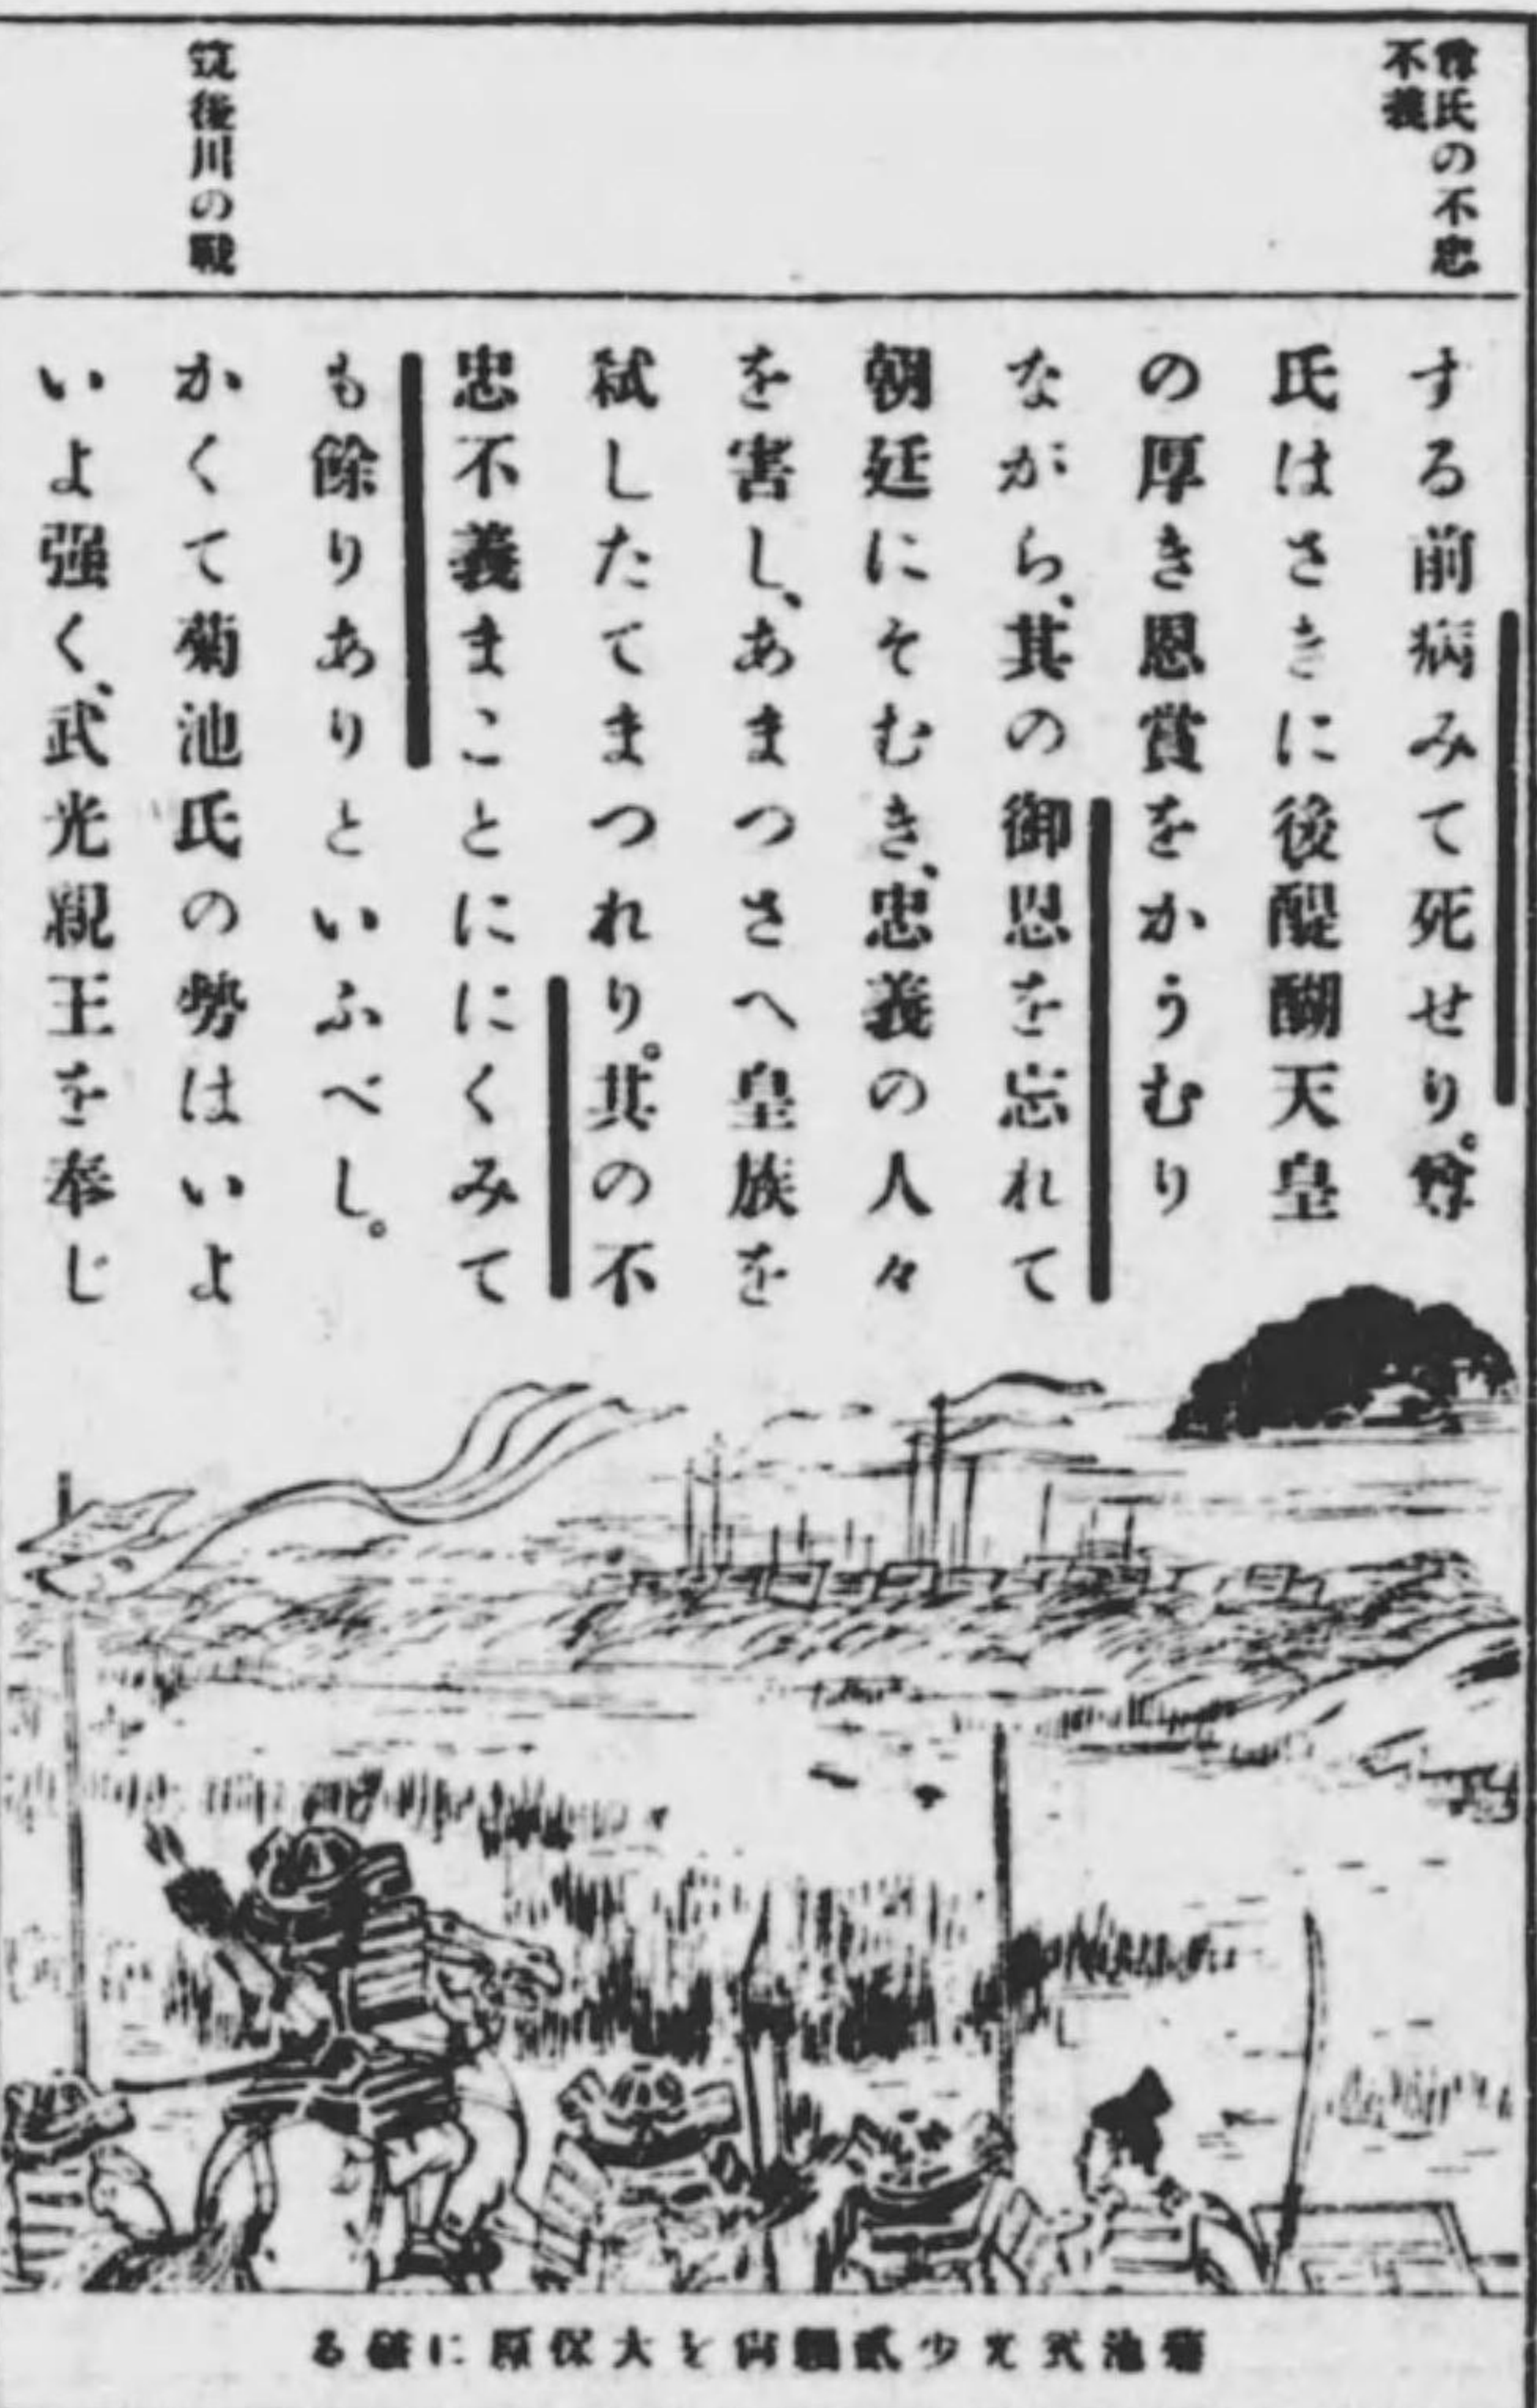 尊氏の不忠
不義
する前病みて死せり。尊
氏はさきに後醍醐天皇
の厚き恩賞をかうむり
ながら、其の御恩を忘れて
朝廷にそむき、忠義の人々
を害し、あまつさへ皇族を
弑したてまつれり。其の不
忠不義まことににくみて
も餘りありといふべし。
筑後川の戰
かくて菊池氏の勢はいよ
いよ强く、武光親王を奉じ
菊池武光少貳頼尚を大保原に破る